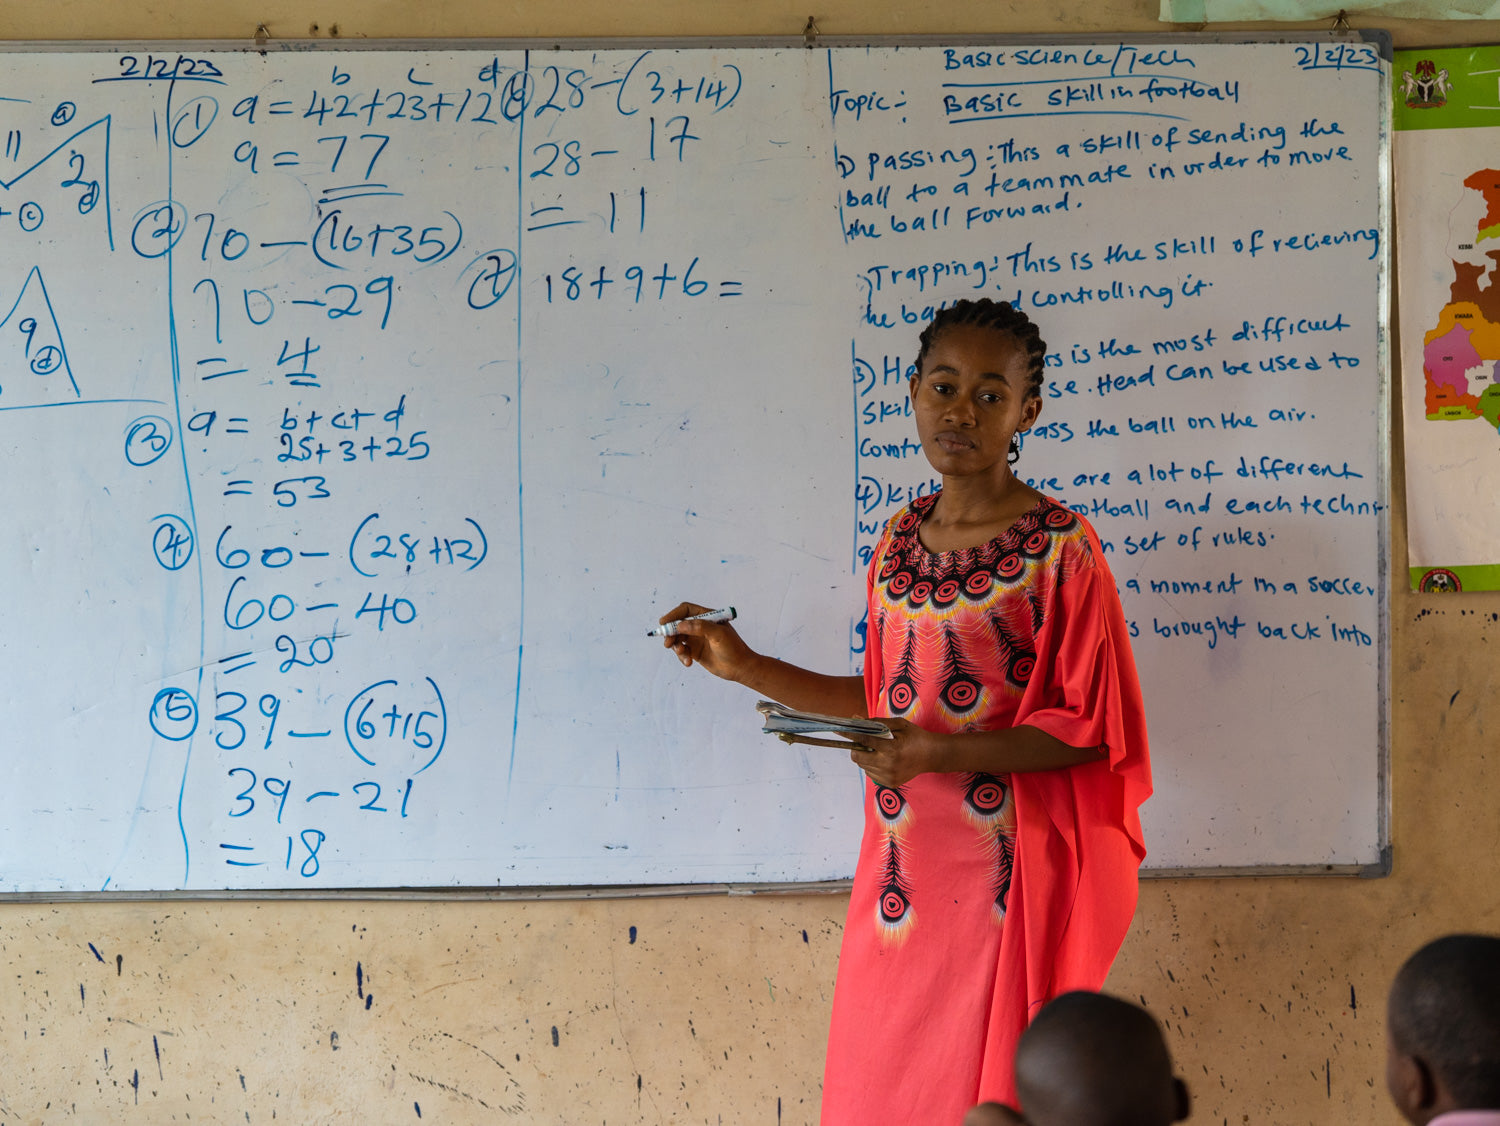 2/2/23
11
a
2
d
c
9
d
b c d
① a = 42+23+12
a = 77
② 70 – (16+35)
70 – 29
= 4
③ a = b+c+d
25+3+25
= 53
④ 60 – (28+12)
60 – 40
= 20
⑤ 39 – (6+15)
39 – 21
= 18
⑥ 28 – (3+14)
28 – 17
= 11
⑦ 18+9+6=
Basic science/Tech 2/2/23
Topic:- Basic skill in football
1) Passing:- This a skill of sending the
ball to a teammate in order to move
the ball forward.
Trapping:- This is the skill of recieving
the ball controlling it.
3) He is the most difficult
skil se. Head can be used to
contr pass the ball on the air.
4) Kick ere are a lot of different
football and each techni
n set of rules.
a moment in a soccer
is brought back into
KEBBI
KWARA
OYO
OSUN
LAGOS